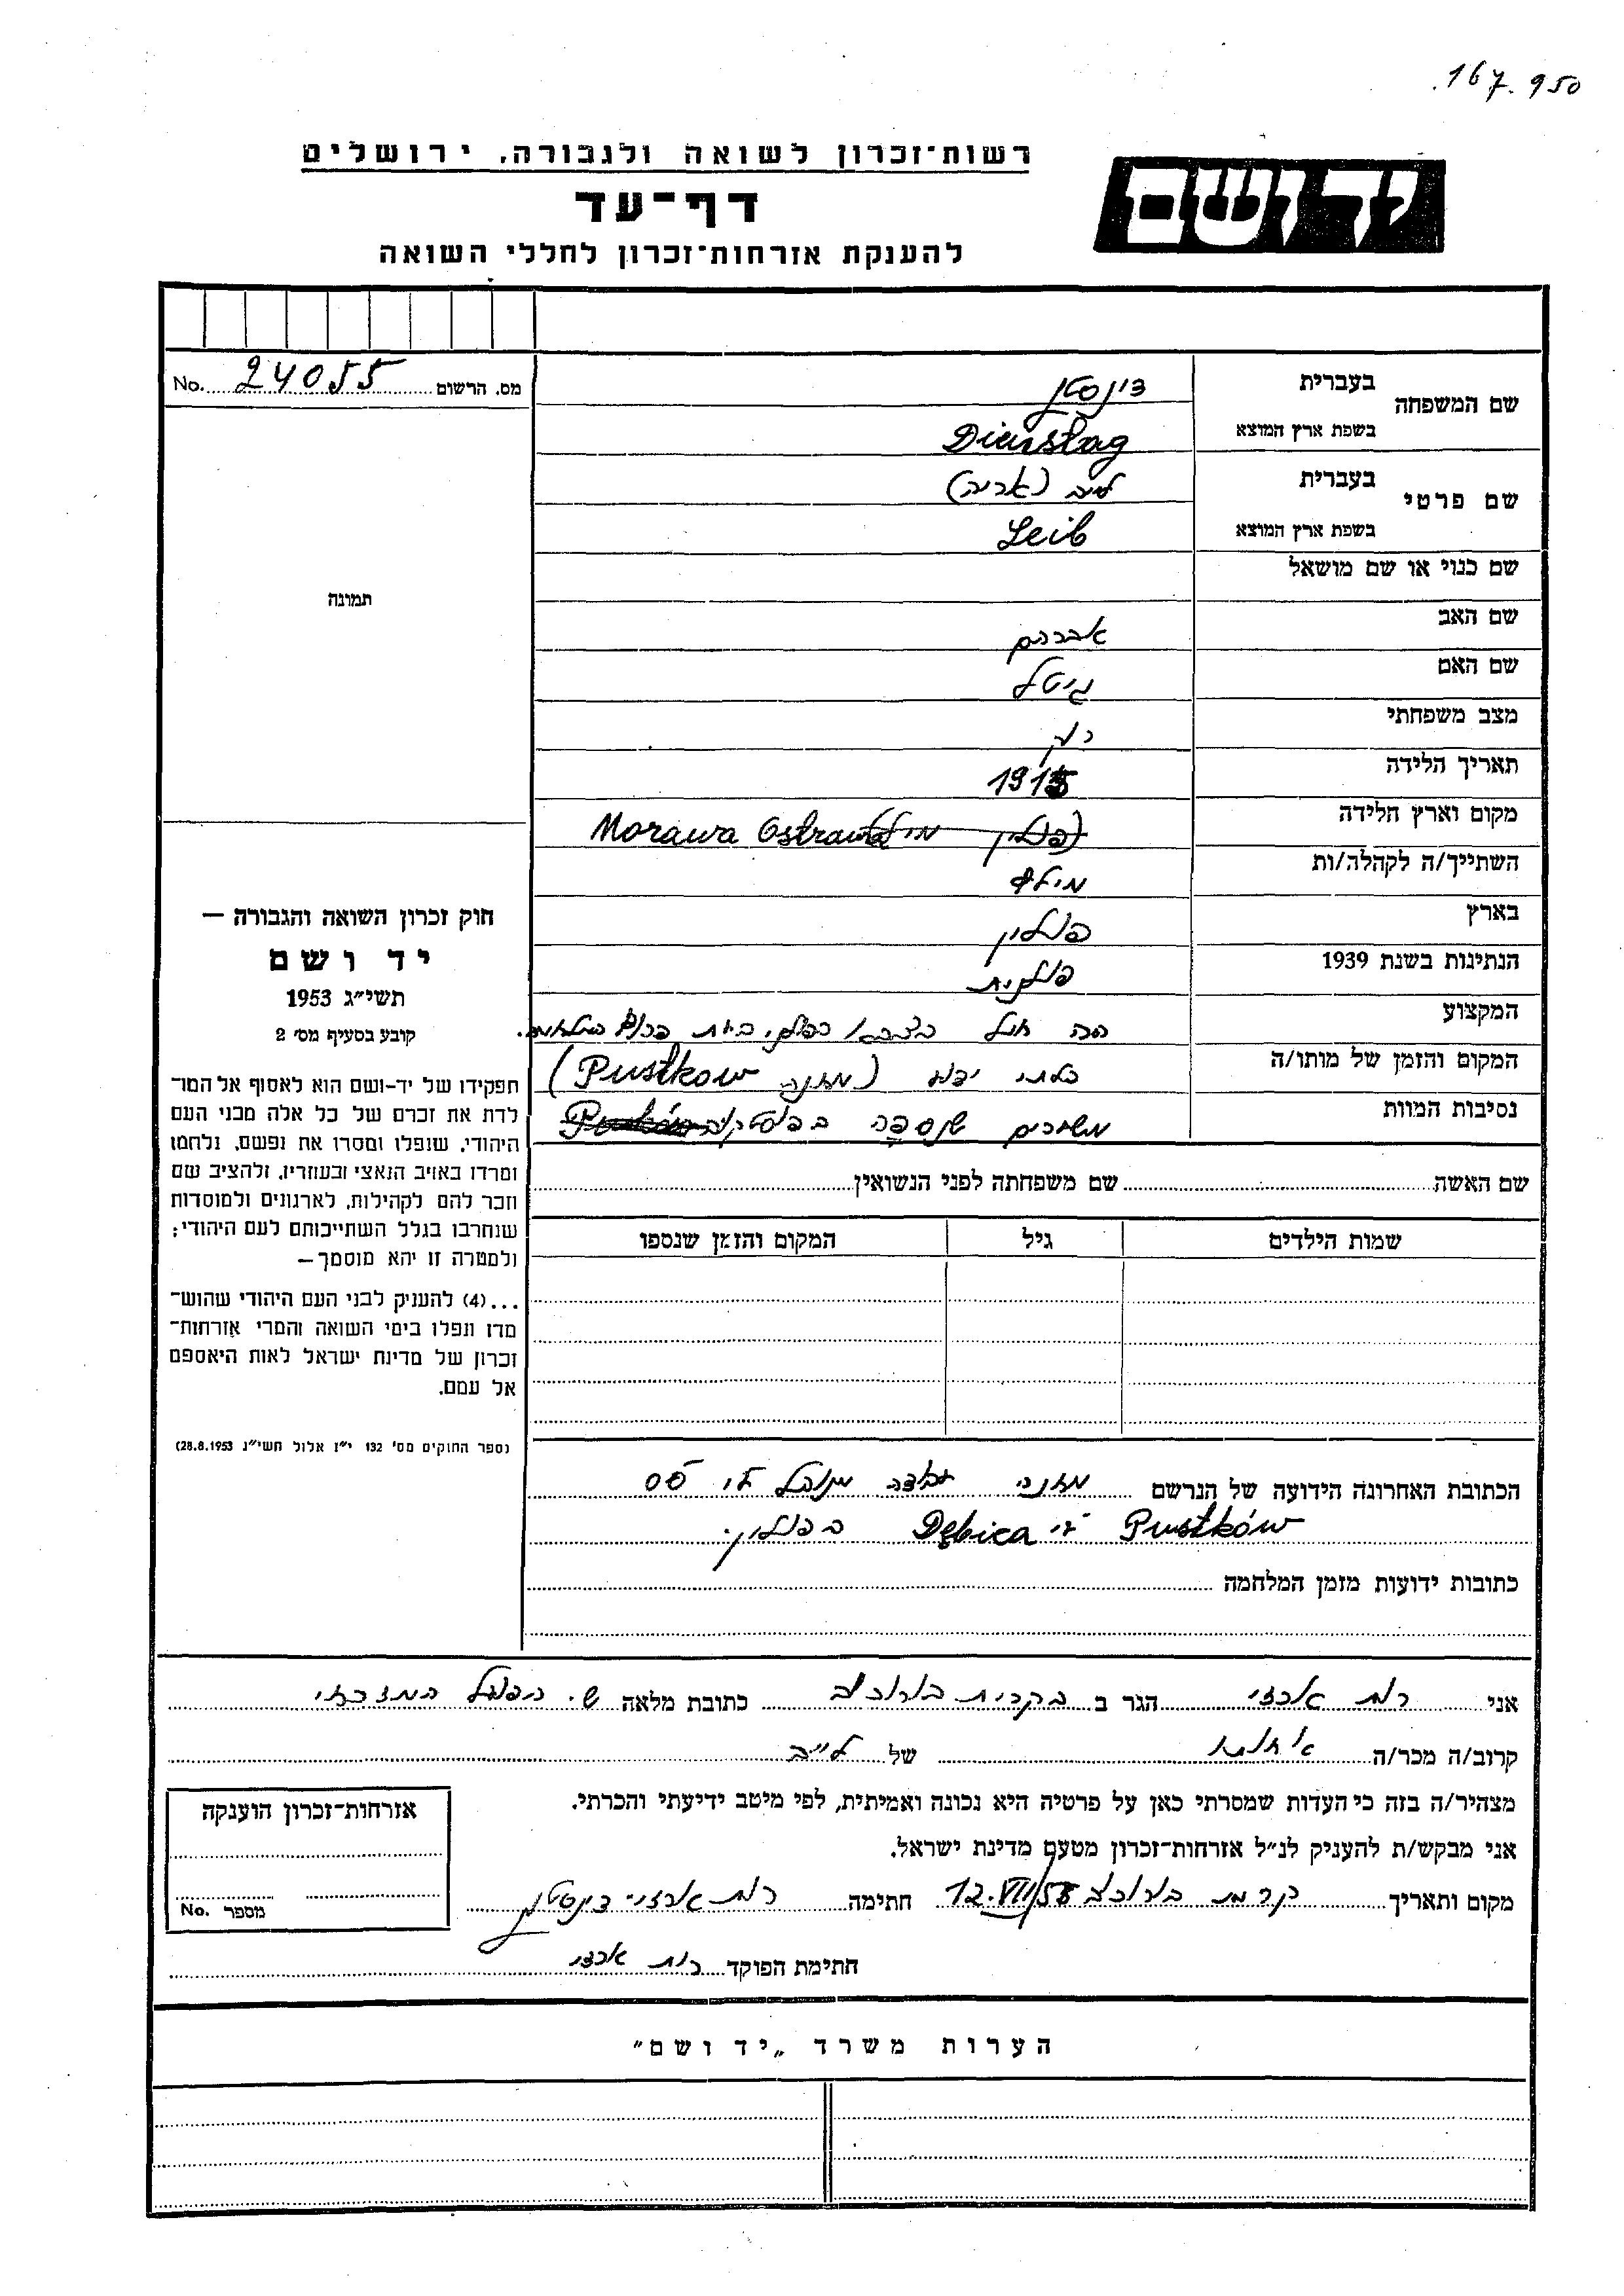 .167.950
ידושם
רשות־זכרון לשואה ולגבורה, ירושלים
דף־עד
להענקת אזרחות־זכרון לחללי השואה
מס. הרשום 24055 No.
שם המשפחה
בעברית דינסטג
בשפת ארץ המוצא Dienstag
שם פרטי
בעברית לייב (אריה)
בשפת ארץ המוצא Leib
שם כנוי או שם מושאל
שם האב אברהם
שם האם גיטל
מצב משפחתי רווק
תאריך הלידה 1915
מקום וארץ הלידה (פולין Morawa Ostrawa
השתייך/ה לקהלה/ות
בארץ פולין
הנתינות בשנת 1939 פולנית
המקצוע היה חיל בצבא
המקום והזמן של מותו/ה בלתי ידוע (מחנה Pustkow)
נסיבות המוות משערים שנספה בפוסטקוב
תמונה
חוק זכרון השואה והגבורה —
יד ושם
תשי״ג 1953
קובע בסעיף מס׳ 2
תפקידו של יד־ושם הוא לאסוף אל המו־
לדת את זכרם של כל אלה מבני העם
היהודי, שנפלו ומסרו את נפשם, נלחמו
ומרדו באויב הנאצי ובעוזריו, ולהציב שם
וזכר להם לקהילות, לארגונים ולמוסדות
שנחרבו בגלל השתייכותם לעם היהודי;
ולמטרה זו יהא מוסמך—
...(4) להעניק לבני העם היהודי שהוש־
מדו ונפלו בימי השואה והמרי אזרחות־
זכרון של מדינת ישראל לאות היאספם
אל עמם.
(ספר החוקים מס׳ 132 י״ז אלול תשי״ג 28.8.1953)
שם האשה שם משפחתה לפני הנשואין
שמות הילדים גיל המקום והזמן שנספו
הכתובת האחרונה הידועה של הנרשם מחנה עבודה מנוהל ע״י SS
Pustków ע״י Dębica בפולין.
כתובות ידועות מזמן המלחמה
אני רות ארזי הגר ב בקרית כתובת מלאה ש. הפועל המזרחי
קרוב/ה מכר/ה אחותו של לייב
מצהיר/ה בזה כי העדות שמסרתי כאן על פרטיה היא נכונה ואמיתית, לפי מיטב ידיעתי והכרתי.
אני מבקש/ת להעניק לנ״ל אזרחות־זכרון מטעם מדינת ישראל.
מקום ותאריך קרית 12.VII/55 חתימה רות ארזי דינסטג
חתימת הפוקד רות ארזי
אזרחות־זכרון הוענקה
מספר No.
הערות משרד „יד ושם״